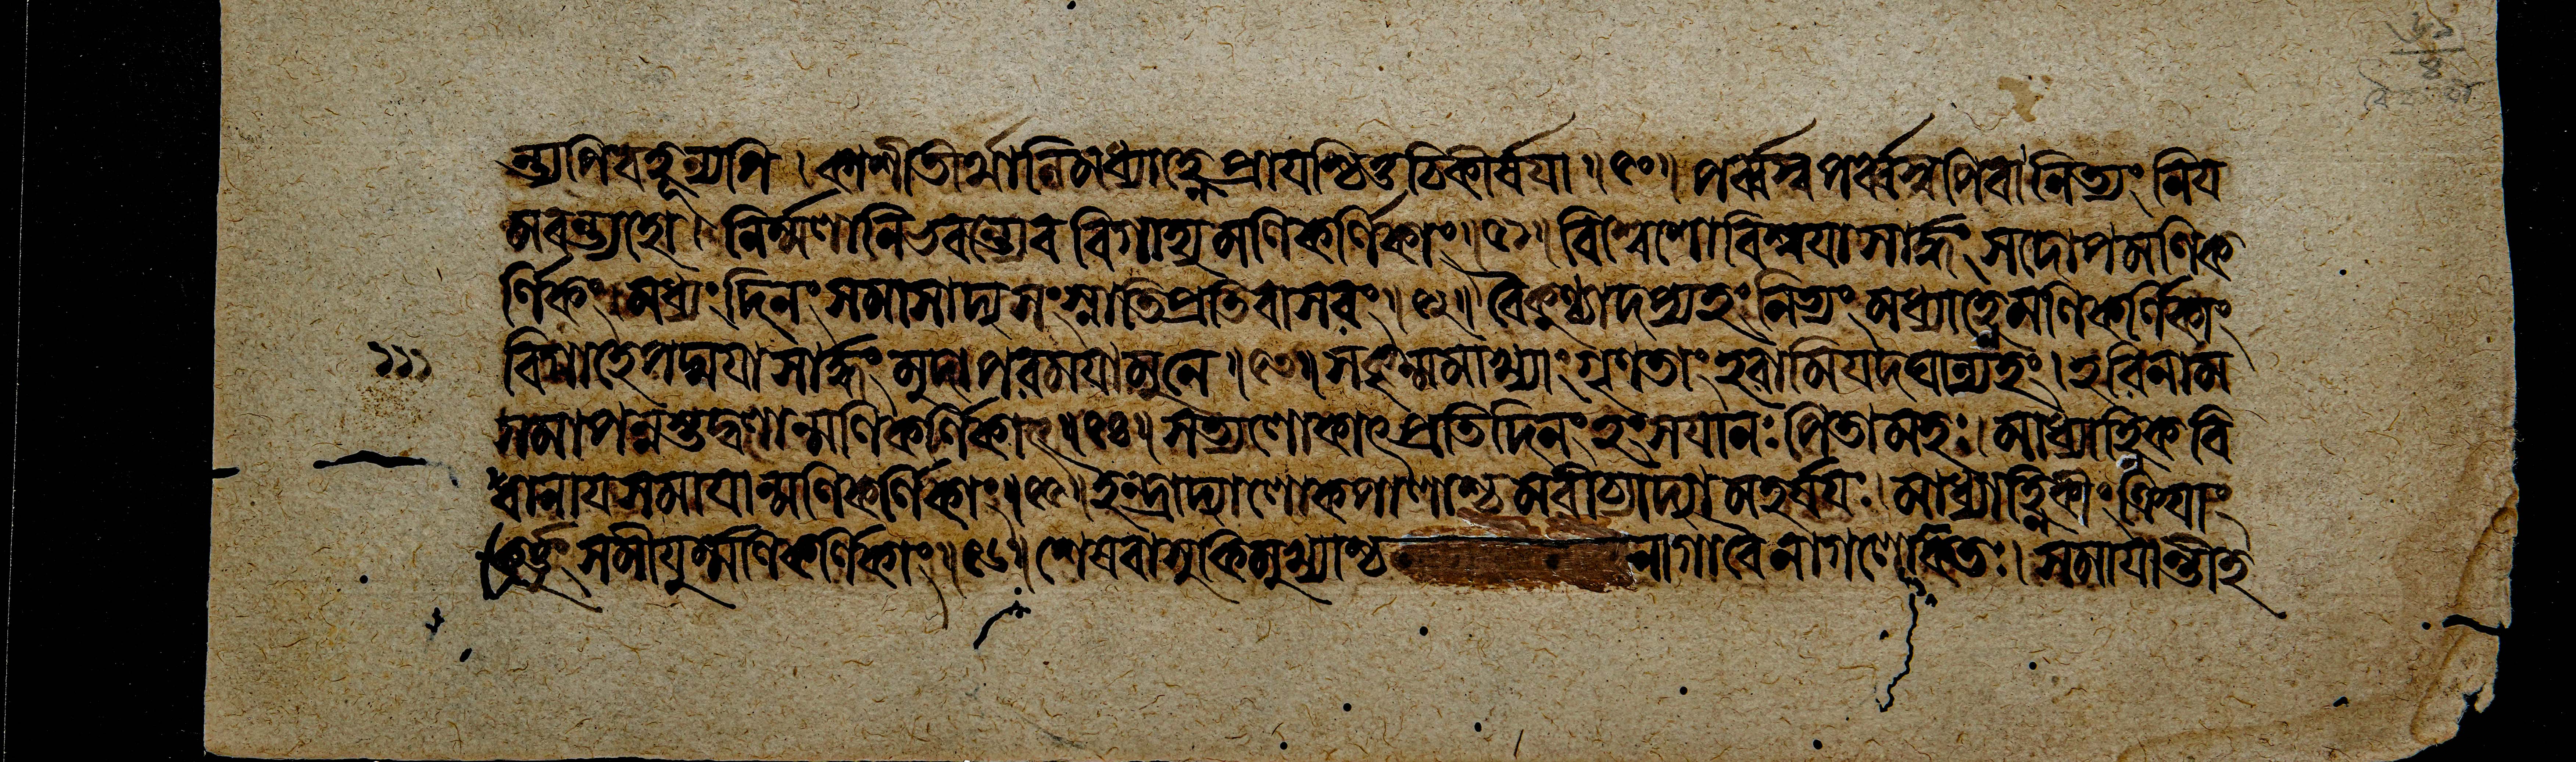 ন্ত্যপিবহূন্যপি । কাশীতীর্থানিমধ্যাহ্নেপ্রায়শ্চিত্তচিকীর্ষযা ॥ ৯০ ॥ পর্ব্বস্বপর্ব্বস্বপিবানিত্যং নিয
মবন্ত্যহো । নির্ম্মলানিভবন্ত্যেব বিগাহ্য মণিকর্ণিকাং ॥ ৯১ ॥ বিশ্বেশোবিশ্বযাসার্দ্ধং সদোপমণিক
র্ণিকং । মধ্যং দিনং সমাসাদ্য সংস্নাতিপ্রতিবাসরং ॥ ৯২ ॥ বৈকুণ্ঠাদপ্যহং নিত্যং মধ্যাহ্নেমণিকর্ণিকাং
বিগাহেপদ্মযাসার্দ্ধং মুদাপরমযামুনে ॥ ৯৩ ॥ সকৃন্মমাখ্যাং গৃণতাং হরামিযদঘান্যহং । হরিনাম
সমাপন্নস্তদ্বলান্মণিকর্ণিকাৎ ॥ ৯৪ ॥ সত্যলোকাৎপ্রতিদিনং হংসযানঃ পিতামহঃ । মাধ্যাহ্নিকবি
ধানাযসমাযান্মণিকর্ণিকাং ॥ ৯৫ ॥ ইন্দ্রাদ্যালোকপালাশ্চ মরীচ্যাদ্যামহর্ষযঃ । মাধ্যাহ্নিকীং ক্রিযাং
কর্ত্তুং সমীযুর্ম্মণিকর্ণিকাং ॥ ৯৬ ॥ শেষবাসুকিমুখ্যাশ্চ নাগাবৈনাগলোকতঃ । সমাযান্তীহ
১১১